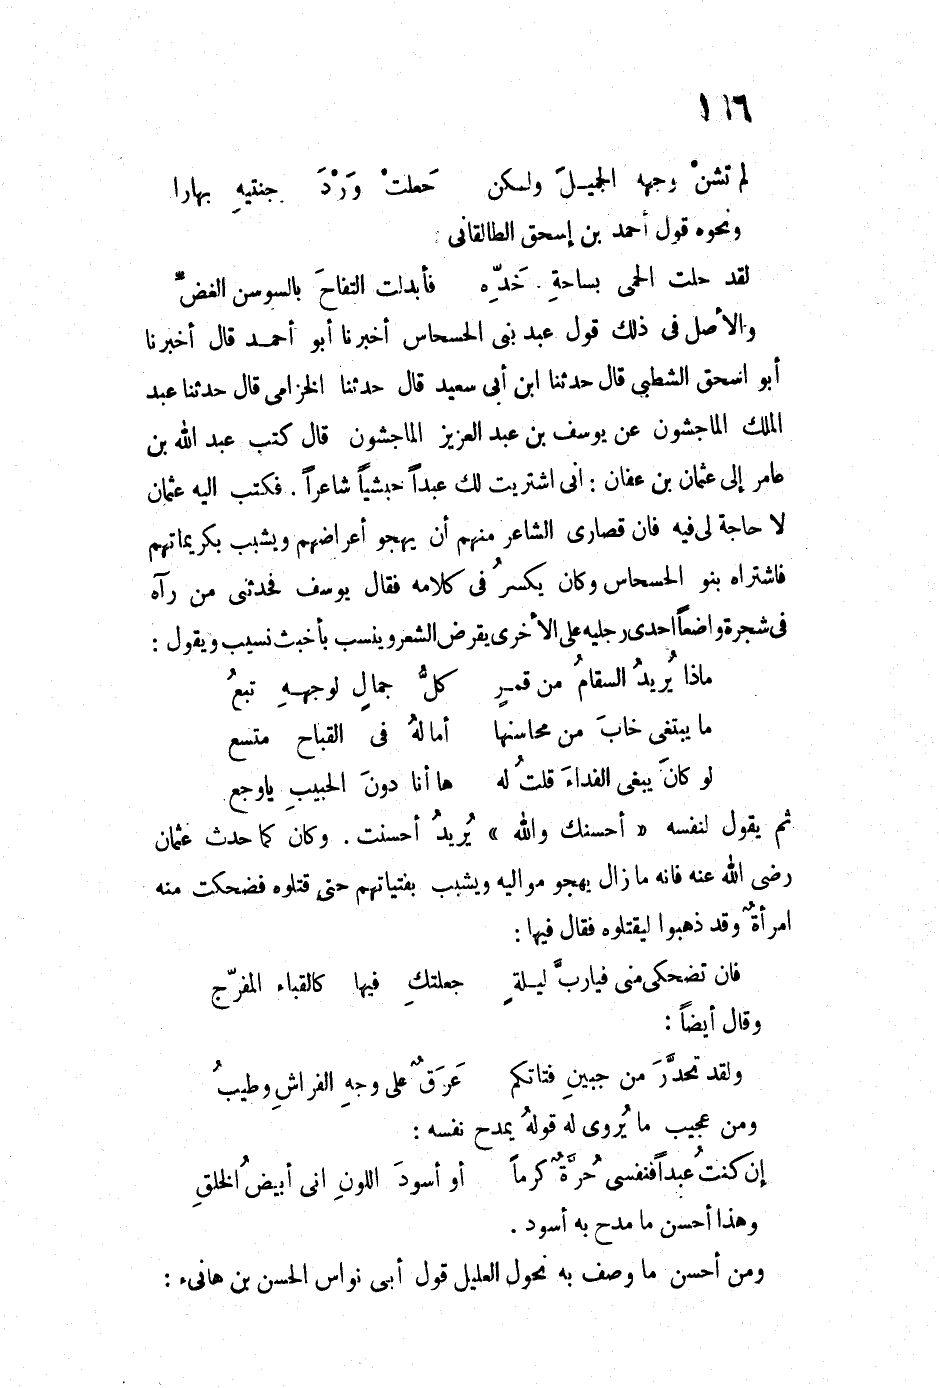 ١٦٦
لم تشنْ وجهه الجميلَ ولكن جَعلتْ وَرْدَ جنتيهِ بهارا
ونحوه قول أحمد بن إسحق الطالقانى :
لقد حلت الحمى بساحةِ خَدِّه فأبدلت التفاحَ بالسوسن الغضِّ
والأصل فى ذلك قول عبد بنى الحسحاس أخبرنا أبو أحمد قال أخبرنا
أبو اسحق الشطبي قال حدثنا ابن أبى سعيد قال حدثنا الخزامى قال حدثنا عبد
الملك الماجشون عن يوسف بن عبد العزيز الماجشون قال كتب عبد الله بن
عامر إلى عثمان بن عفان : انى اشتريت لك عبداً حبشياً شاعراً . فكتب اليه عثمان
لا حاجة لى فيه فان قصارى الشاعر منهم أن يهجو أعراضهم ويشبب بكريماتهم
فاشتراه بنو الحسحاس وكان يكسرُ فى كلامه فقال يوسف فحدثنى من رآه
فى شجرة واضعاً احدى رجليه على الأخرى يقرض الشعر وينسب بأخبث نسيب ويقول :
ماذا يُريدُ السقامُ من قمرٍ كلُّ جمالٍ لوجههِ تبعُ
ما يبتغى خابَ من محاسنها أما لهُ فى القباح متسع
لو كانَ يبغى الفداءَ قلتُ له ها أنا دونَ الحبيبِ ياوجع
ثم يقول لنفسه « أحسنك والله » يُريدُ أحسنت . وكان كما حدث عثمان
رضى الله عنه فانه ما زال يهجو مواليه ويشبب بفتياتهم حتى قتلوه فضحكت منه
امرأةٌ وقد ذهبوا ليقتلوه فقال فيها :
فان تضحكى منى فياربَّ ليلةٍ جعلتكِ فيها كالقباء المفرّج
وقال أيضاً :
ولقد تحدَّرَ من جبينِ فتاتكم عَرَقٌ على وجهِ الفراشِ وطيبُ
ومن عجيب ما يُروى له قولهُ يمدح نفسه :
إن كنتُ عبداً فنفسى حُرَّةٌ كرماً أو أسودَ اللونِ انى أبيضُ الخلقِ
وهذا أحسن ما مدح به أسود .
ومن أحسن ما وصف به نحول العليل قول أبى نواس الحسن بن هانىء :